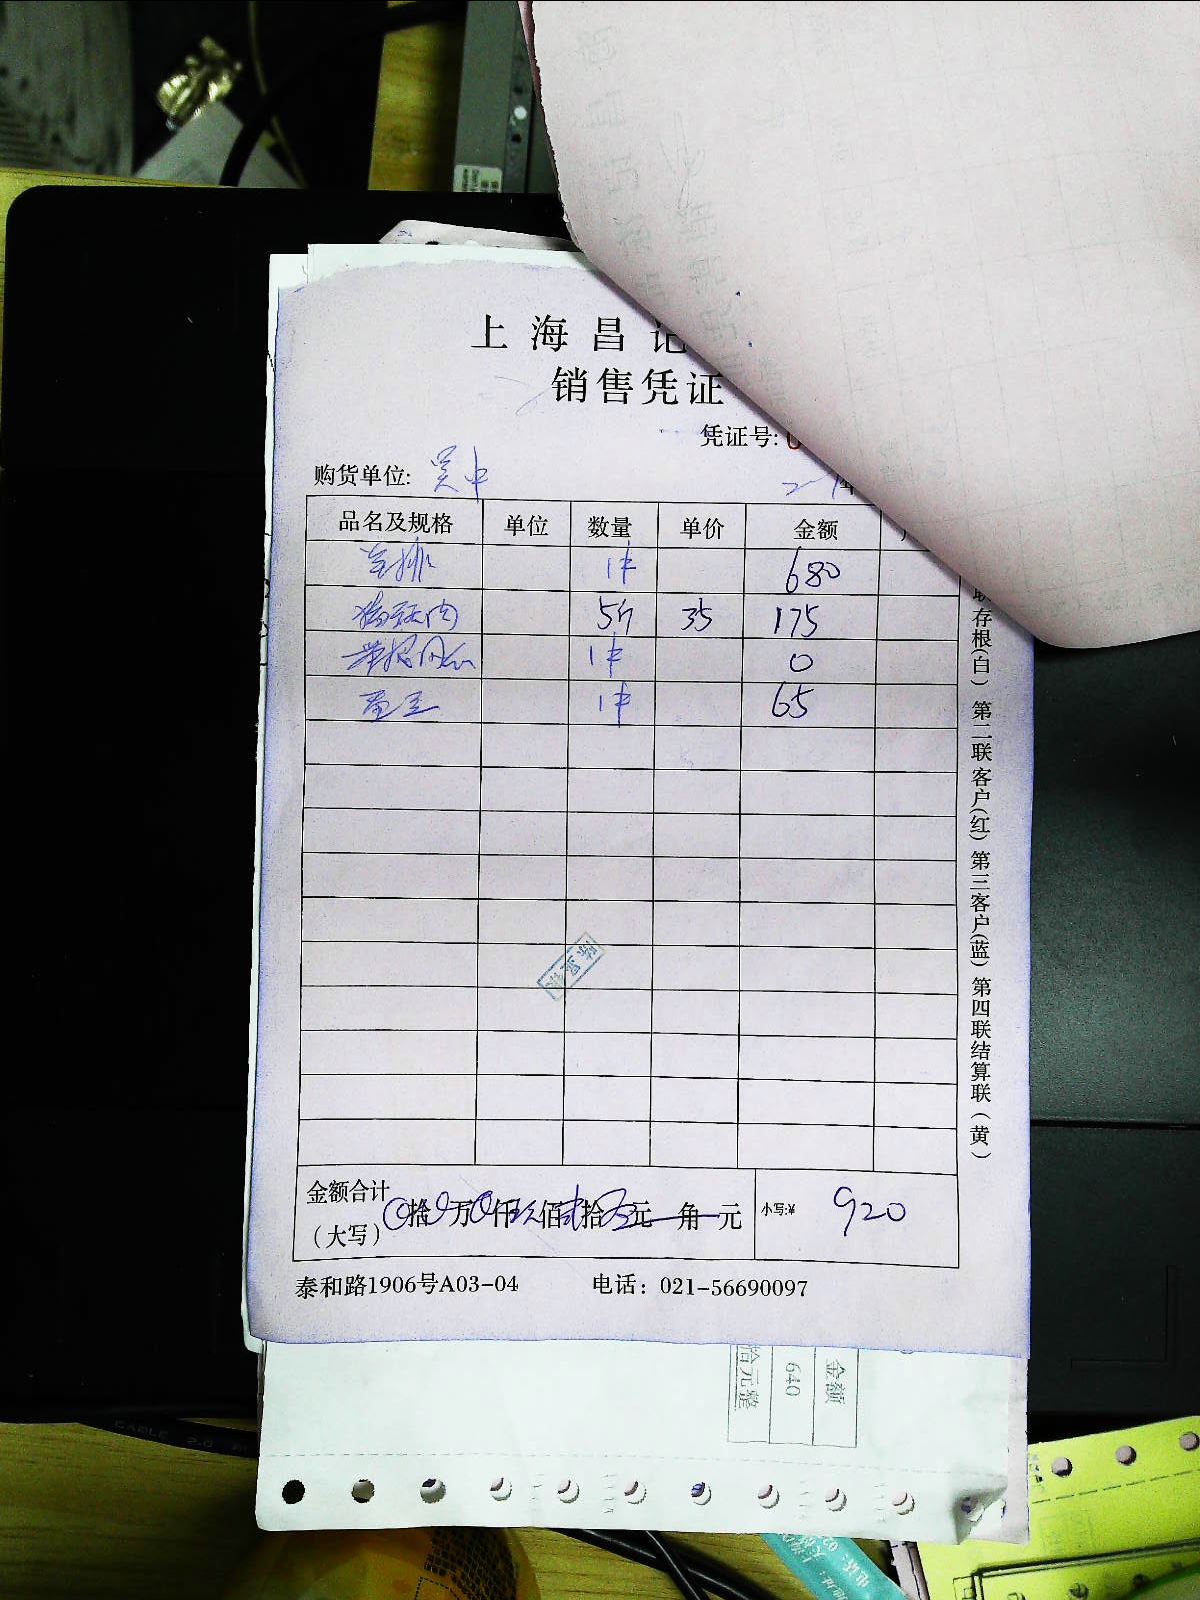 上海昌记
销售凭证
凭证号:
购货单位: 吴中
年
品名及规格 单位 数量 单价 金额
全排 1件 680
5斤 35 175
1件 0
1件 65
存根(白) 第二联客户(红) 第三客户(蓝) 第四联结算联(黄)
金额合计
(大写)
拾 万 仟玖佰贰拾 元 角 元
小写:¥ 920
泰和路1906号A03-04 电话: 021-56690097
金额
640
拾元整
CABLE 2.0